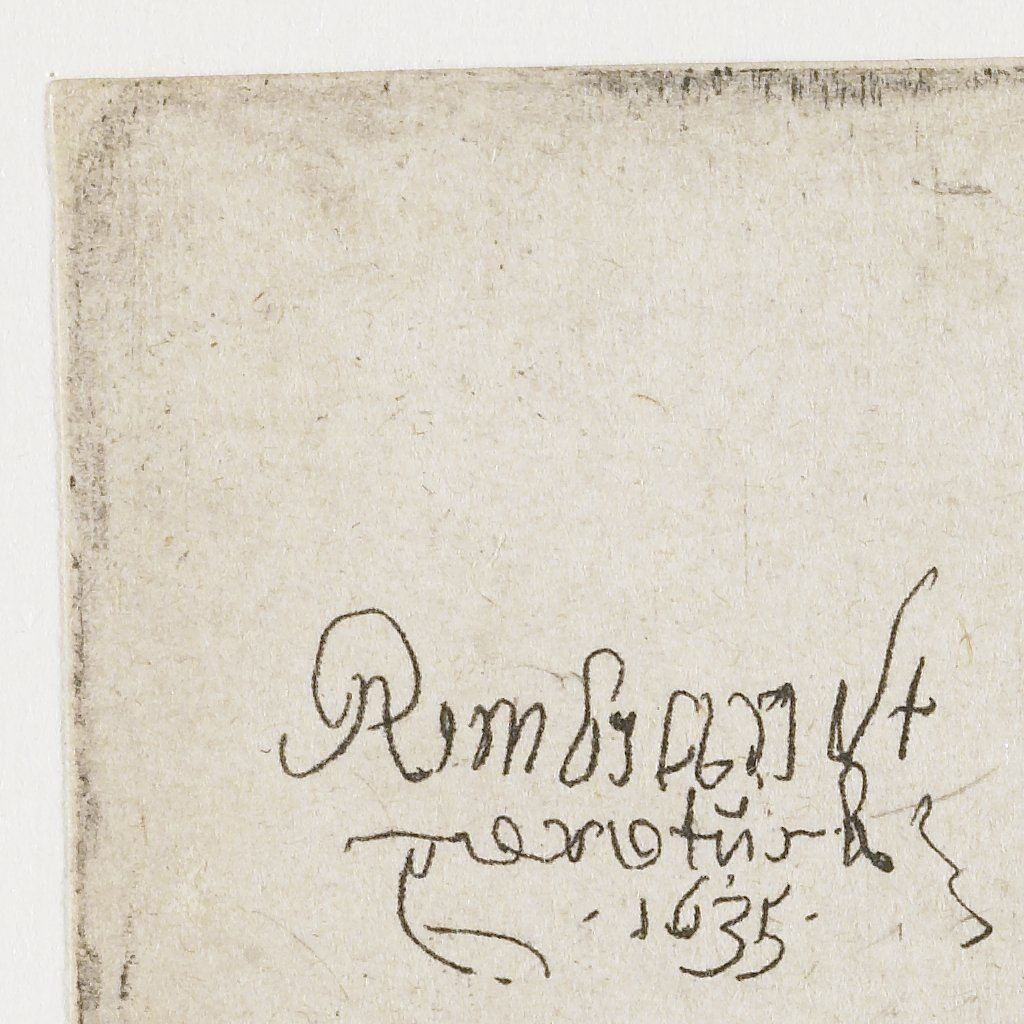 Rembrandt
geretŭck
· 1635 ·